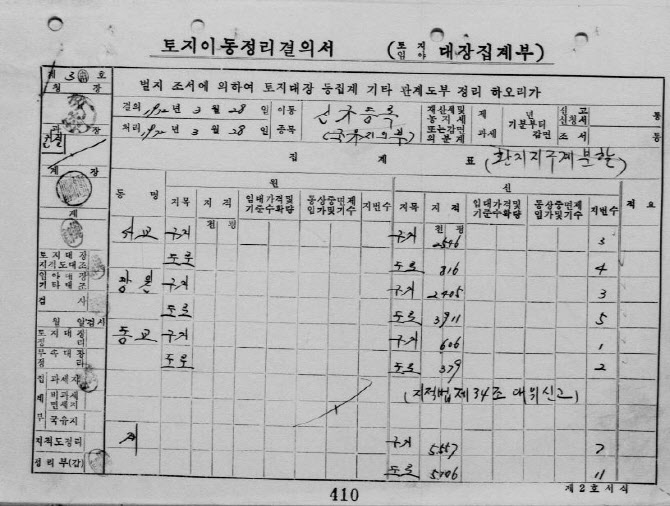 토지이동정리결의서 (토지 임야 대장집계부)
제 3 호
청 장
별지 조서에 의하여 토지대장 등집계 기타 관계도부 정리 하오리가
결의 년 3 월 28 일 이동
처리 년 3 월 28 일 종목
신규등록
재산세및 농지세 또는감면의 분계
제 년 기분부터 과세 감면
신고 신청서 통
조서 통
과 장
전결
집 계 표 (환지지구계분할)
계 장
계
동 명 원 신 적 요
지목 지적 임대가격및 기준수확량 지번수 지목 지적 임대가격및 기준수확량 지번수
전 평 전 평
서교 구거 구거 2546 3
도로 도로 816 4
구거 구거 2405 3
도로 도로 3911 5
동교 구거 구거 606 1
도로 도로 379 2
(지적법제34조
계 구거 5557 7
도로 5106 11
토지대장
지적도대조
임야대장
기타대조
검 사
월 일
토지대장
정 리
정 리
집 과세지
계 비과세
면세지
부 국유지
지적도정리
정리부(갑)
410
제2호서식